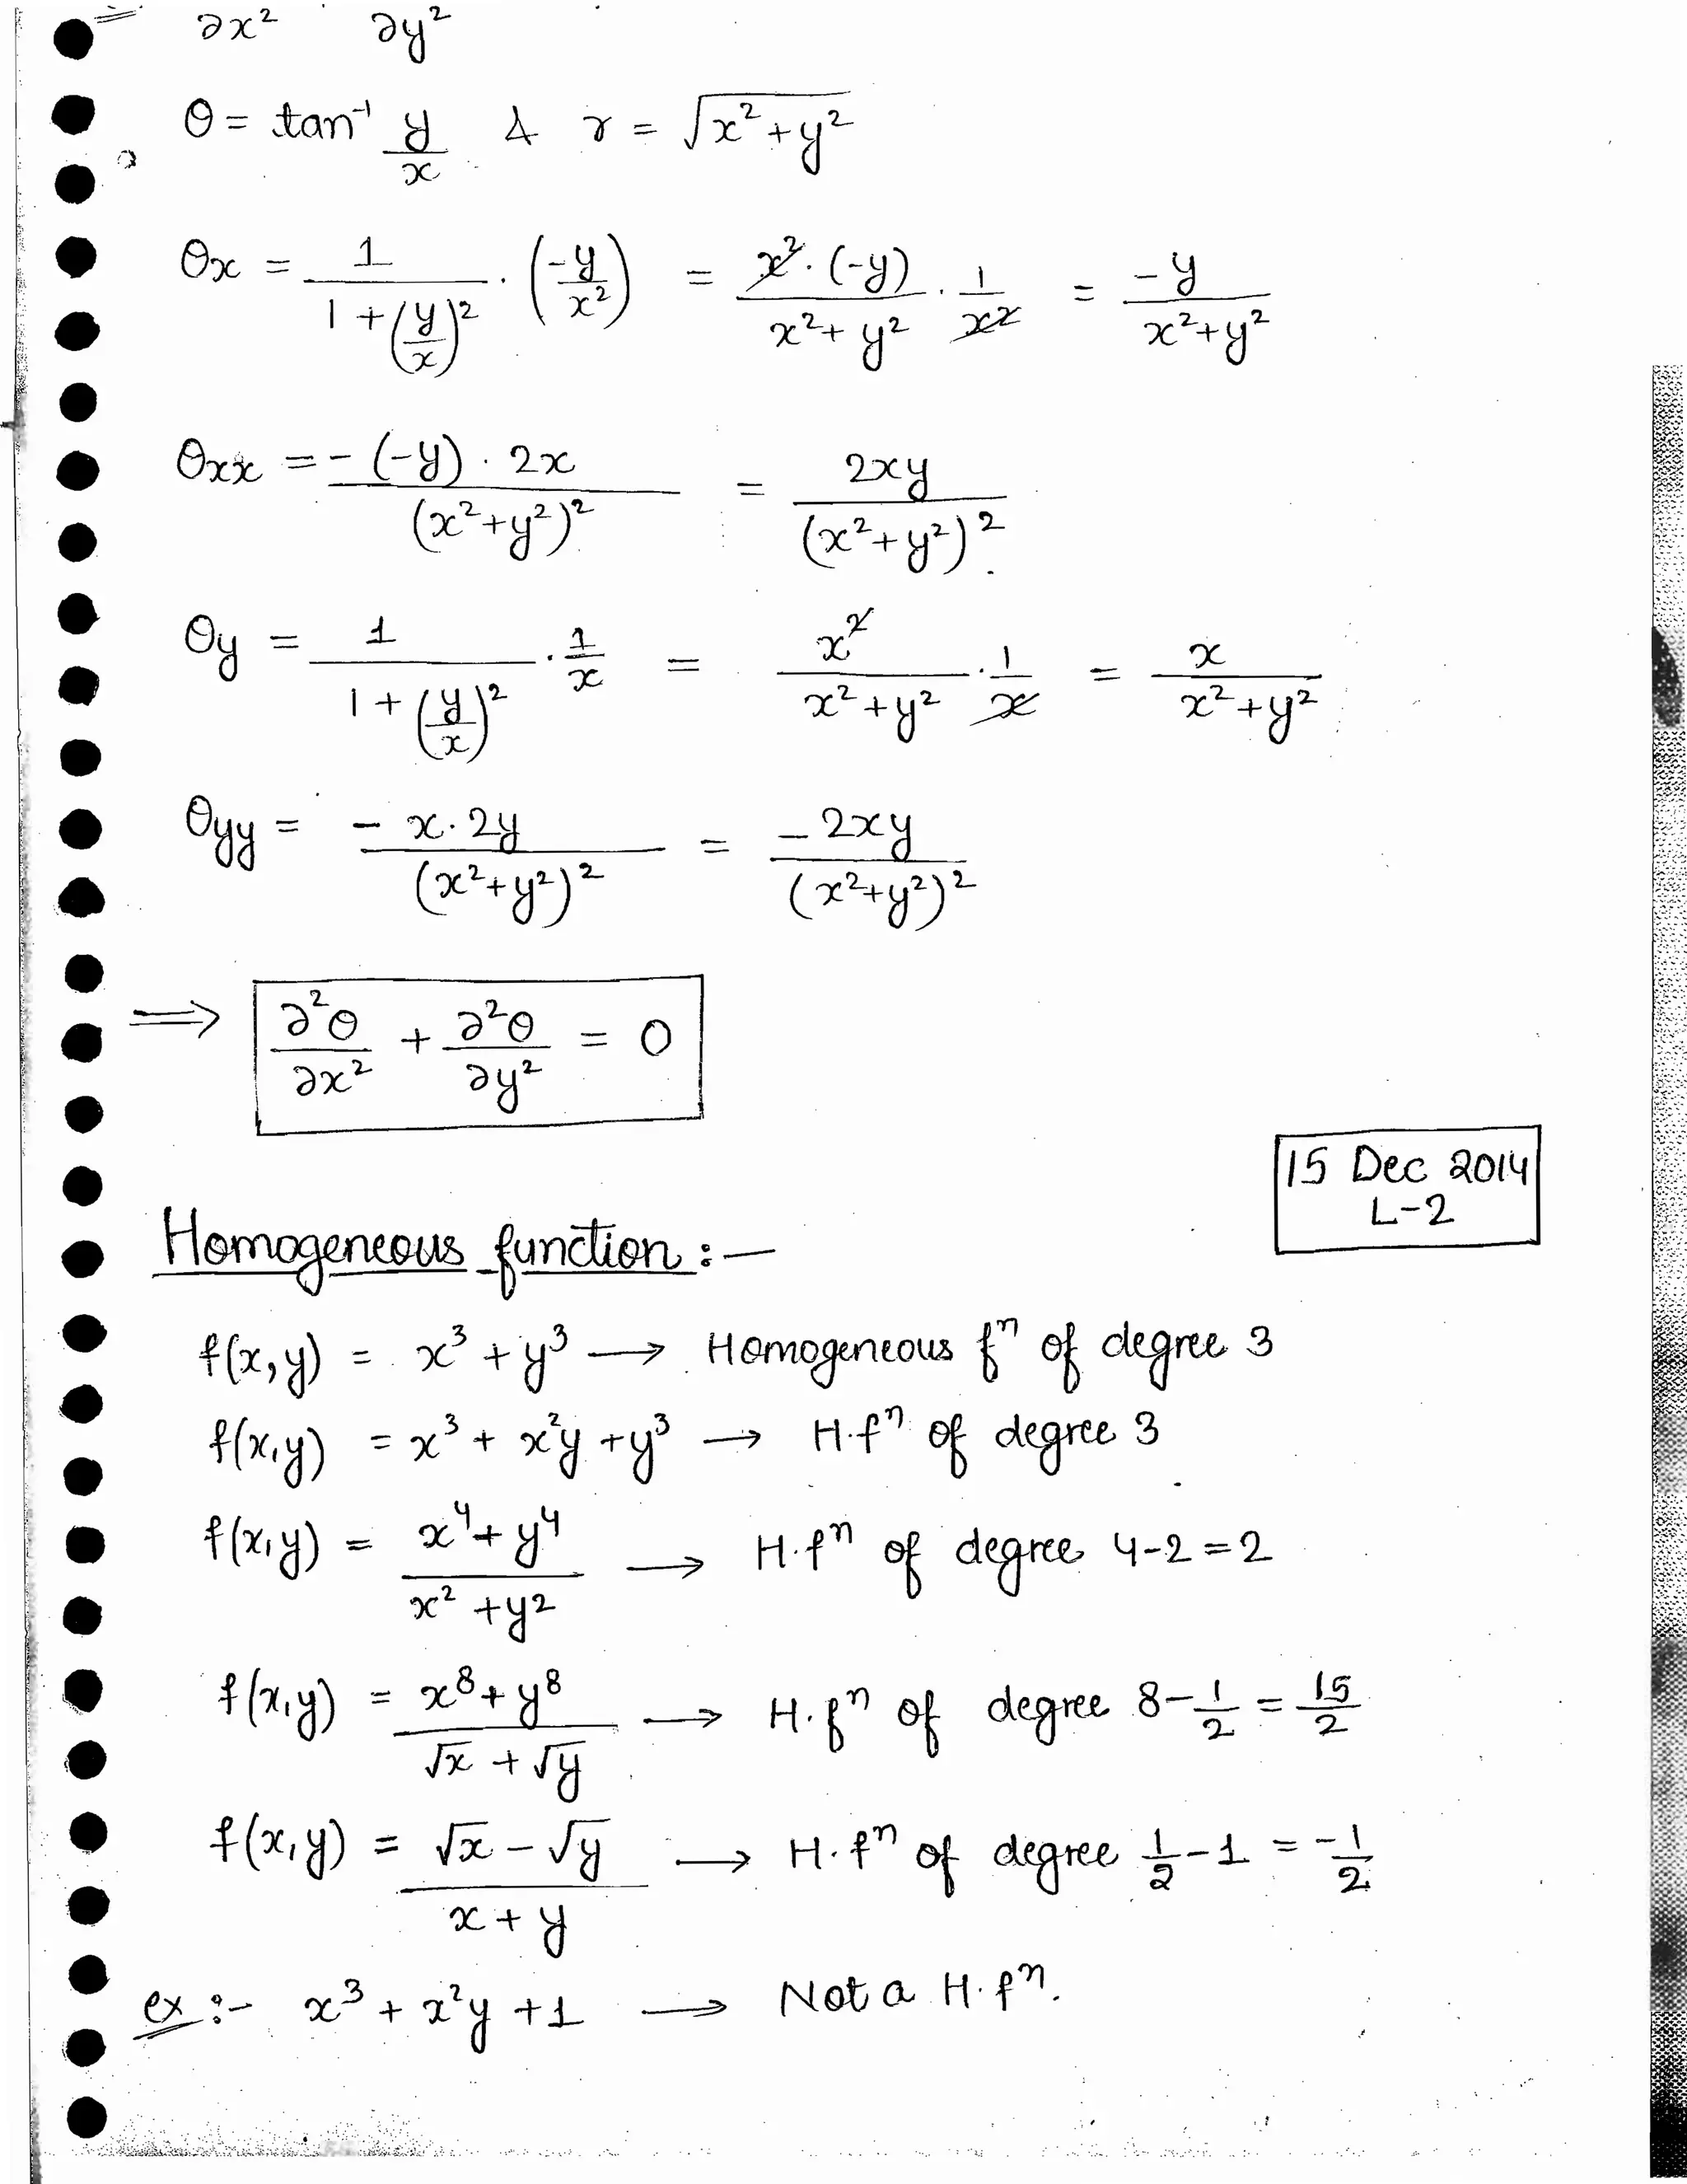 ∂x² ∂y²
θ = tan⁻¹ y/x & r = √(x²+y²)
θx = 1/(1+(y/x)²) · (-y/x²) = x²·(-y)/(x²+y²) · 1/x² = -y/(x²+y²)
θxx = -(-y)·2x/(x²+y²)² = 2xy/(x²+y²)²
θy = 1/(1+(y/x)²) · 1/x = x²/(x²+y²) · 1/x = x/(x²+y²)
θyy = -x·2y/(x²+y²)² = -2xy/(x²+y²)²
⟹ ∂²θ/∂x² + ∂²θ/∂y² = 0
15 Dec 2014
L-2
Homogeneous function :—
f(x,y) = x³ + y³ → Homogeneous fⁿ of degree 3
f(x,y) = x³ + x²y + y³ → H.fⁿ of degree 3
f(x,y) = (x⁴+y⁴)/(x²+y²) → H.fⁿ of degree 4-2=2
f(x,y) = (x⁸+y⁸)/(√x+√y) → H.fⁿ of degree 8-1/2 = 15/2
f(x,y) = (√x-√y)/(x+y) → H.fⁿ of degree 1/2-1 = -1/2
ex :- x³ + x²y + 1 → Not a H.fⁿ.